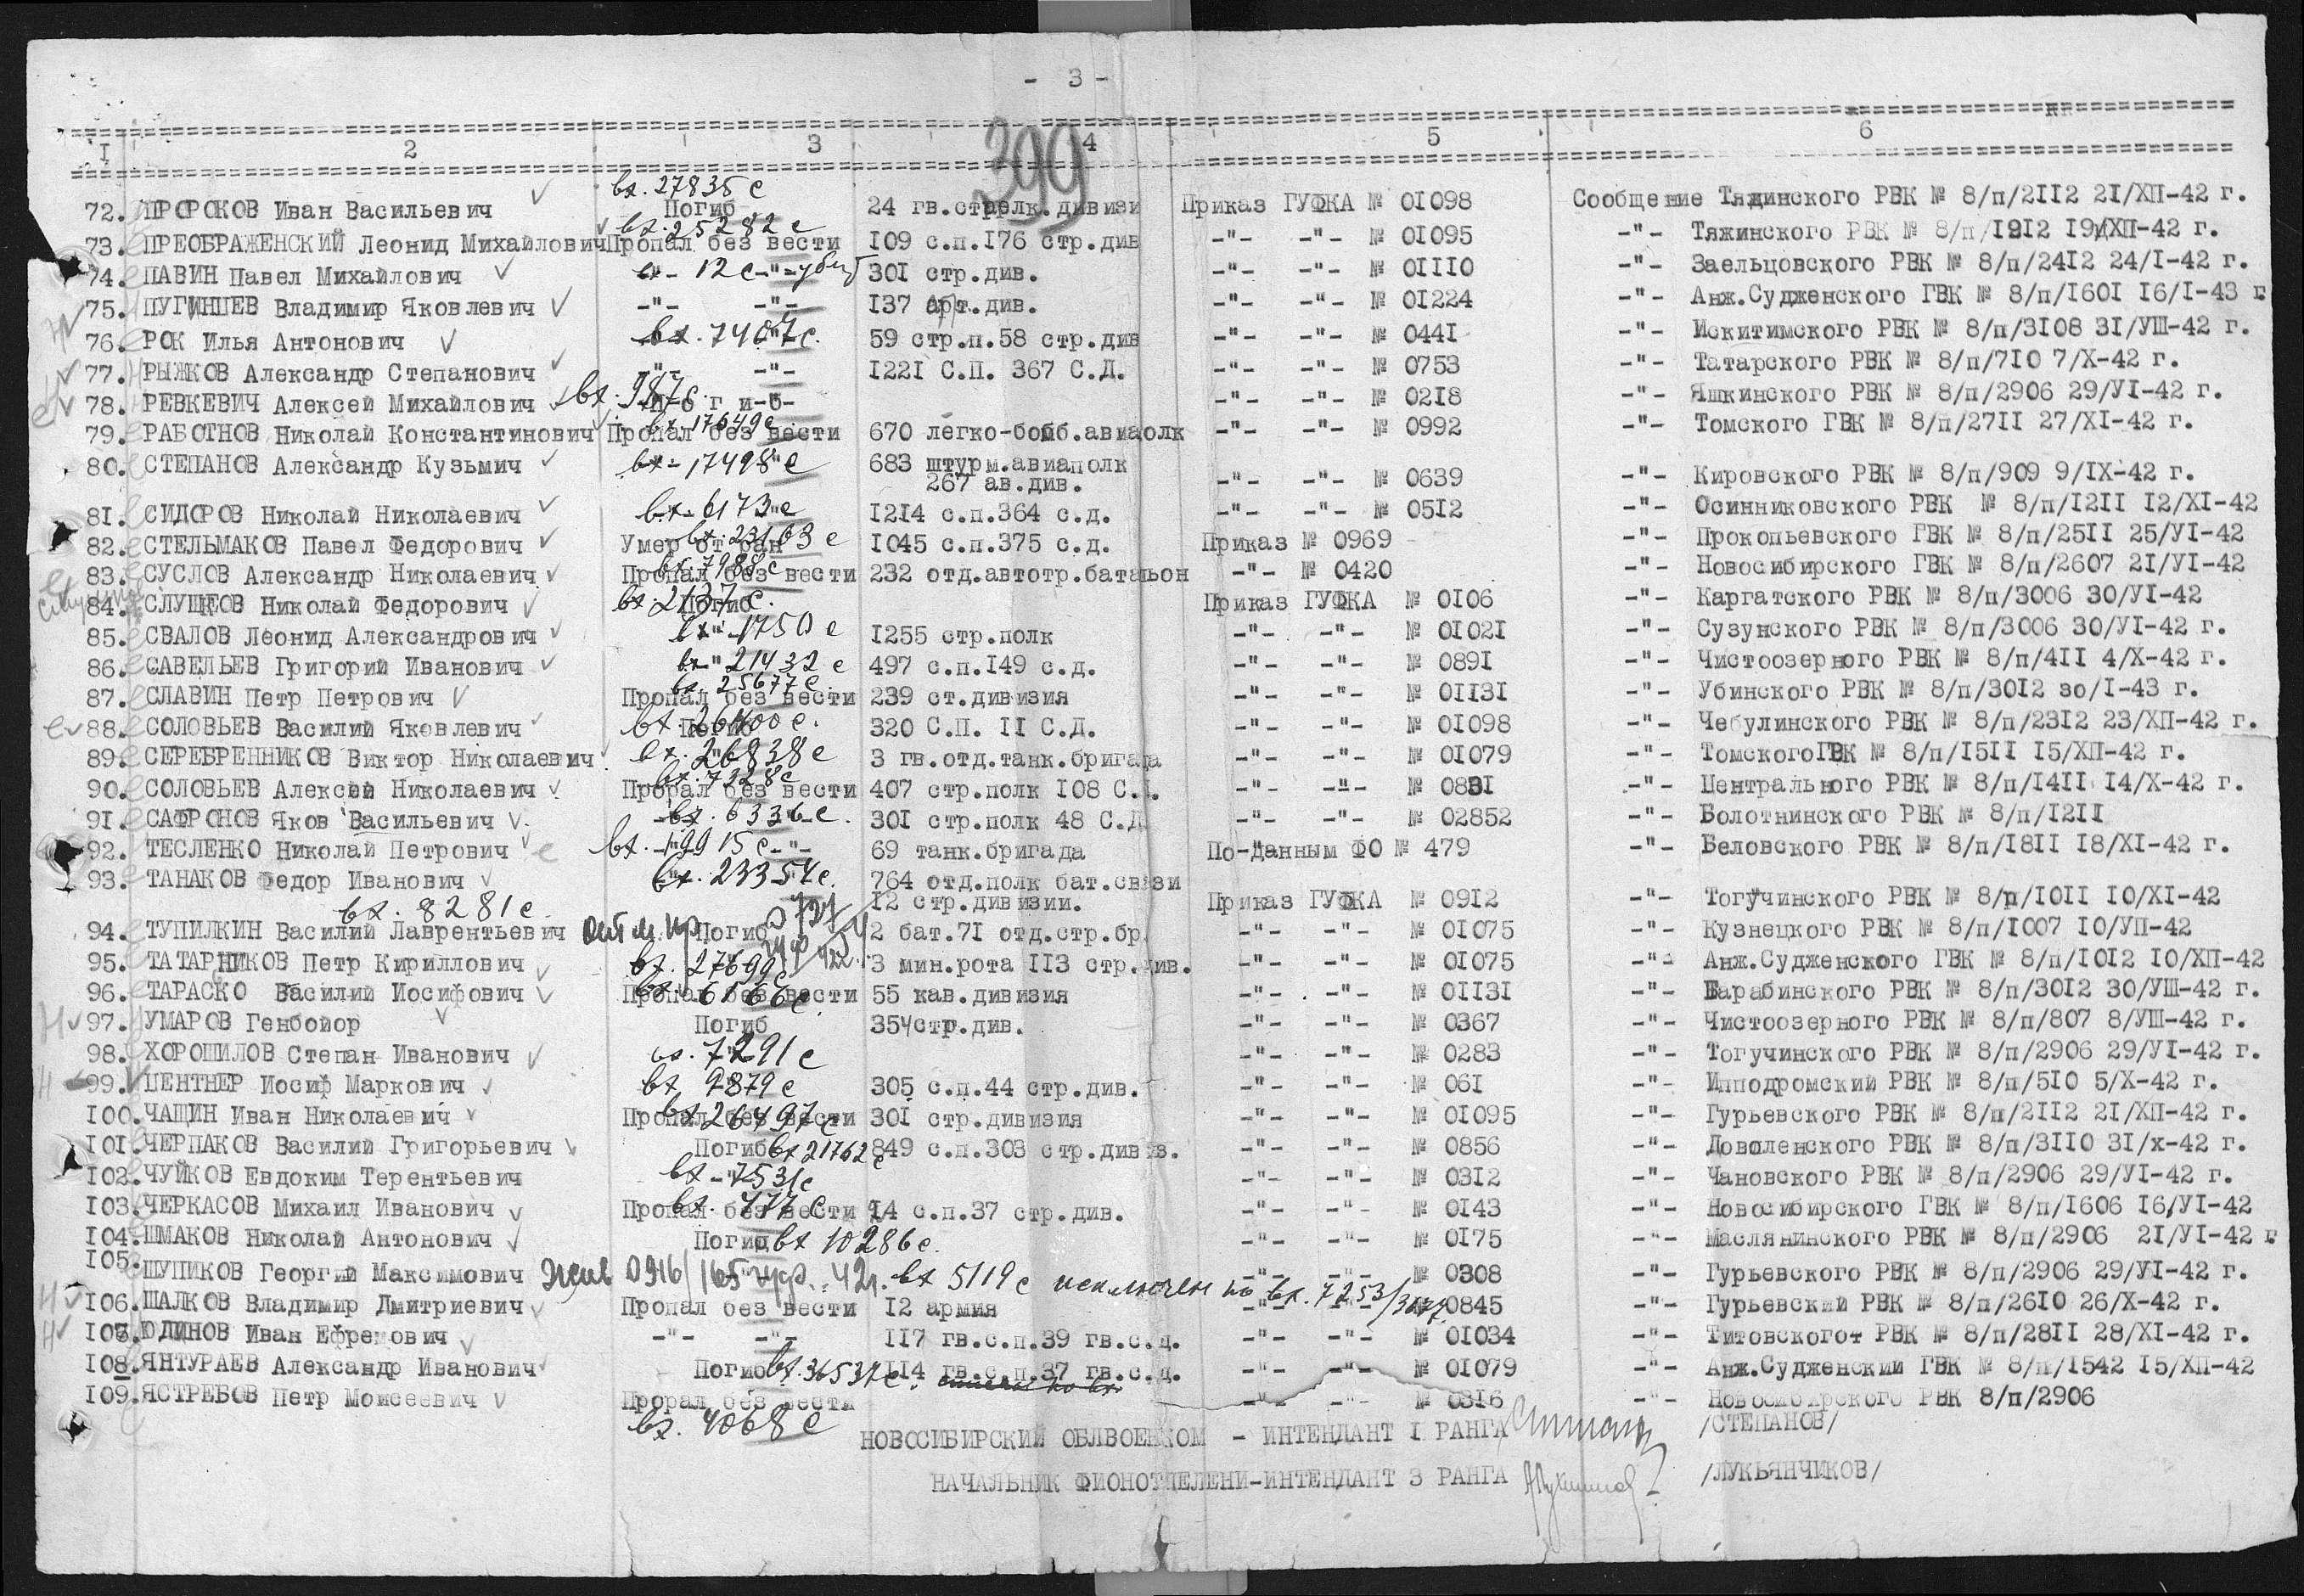 - 3 -
399
I 2 3 4 5 6
вх. 27835 с
72. ПРОРОКОВ Иван Васильевич Погиб 24 гв.стрелк.дивизи Приказ ГУФКА № 01098 Сообщение Тяжинского РВК № 8/п/2II2 2I/ХП-42 г.
вх. 25282 с
73. ПРЕОБРАЖЕНСКИЙ Леонид Михайлович Пропал без вести I09 с.п.I76 стр.див -"- -"- № 01095 -"- Тяжинского РВК № 8/п/I9I2 I9/ХП-42 г.
74. ПАВИН Павел Михайлович 12 с -"- убит 30I стр.див. -"- -"- № 0III0 -"- Заельцовского РВК № 8/п/24I2 24/I-42 г.
75. ПУГИНЦЕВ Владимир Яковлевич -"- -"- I37 арт.див. -"- -"- № 0I224 -"- Анж.Судженского ГВК № 8/п/I60I I6/I-43 г.
76. РОК Илья Антонович вх. 7407 с. 59 стр.п.58 стр.див -"- -"- № 044I -"- Искитимского РВК № 8/п/3I08 3I/УШ-42 г.
77. РЫЖКОВ Александр Степанович -"- -"- I22I С.П. 367 С.Д. -"- -"- № 0753 -"- Татарского РВК № 8/п/7I0 7/Х-42 г.
78. РЕВКЕВИЧ Алексей Михайлович вх. 987 с. П о г и б -"- -"- № 02I8 -"- Яшкинского РВК № 8/п/2906 29/УI-42 г.
вх. 17649 с
79. РАБОТНОВ Николай Константинович Пропал без вести 670 легко-бомб.авиаполк -"- -"- № 0992 -"- Томского ГВК № 8/п/27II 27/ХI-42 г.
80. СТЕПАНОВ Александр Кузьмич вх. 17498 с 683 штурм.авиаполк
267 ав.див. -"- -"- № 0639 -"- Кировского РВК № 8/п/909 9/IХ-42 г.
81. СИДОРОВ Николай Николаевич вх. 6173 с I2I4 с.п.364 с.д. -"- -"- № 05I2 -"- Осинниковского РВК № 8/п/I2II I2/ХI-42
82. СТЕЛЬМАКОВ Павел Федорович Умер от ран вх. 23163 с I045 с.п.375 с.д. Приказ № 0969 -"- Прокопьевского ГВК № 8/п/25II 25/УI-42
вх. 7988 с
83. СУСЛОВ Александр Николаевич Пропал без вести 232 отд.автотр.батальон -"- № 0420 -"- Новосибирского ГВК № 8/п/2607 2I/УI-42
84. СЛУЩЕОВ Николай Федорович вх. 2137 с. Погиб Приказ ГУФКА № 0I06 -"- Каргатского РВК № 8/п/3006 30/УI-42
85. СВАЛОВ Леонид Александрович вх. 1750 с I255 стр.полк -"- -"- № 0I02I -"- Сузунского РВК № 8/п/3006 30/УI-42 г.
86. САВЕЛЬЕВ Григорий Иванович вх. 21432 с 497 с.п.I49 с.д. -"- -"- № 089I -"- Чистоозерного РВК № 8/п/4II 4/Х-42 г.
вх. 25677 с
87. СЛАВИН Петр Петрович Пропал без вести 239 ст.дивизия -"- -"- № 0II3I -"- Убинского РВК № 8/п/30I2 зо/I-43 г.
88. СОЛОВЬЕВ Василий Яковлевич вх. 26400 с. Погиб 320 С.П. II С.Д. -"- -"- № 0I098 -"- Чебулинского РВК № 8/п/23I2 23/ХП-42 г.
89. СЕРЕБРЕННИКОВ Виктор Николаевич вх. 26838 с 3 гв.отд.танк.бригада -"- -"- № 0I079 -"- ТомскогоГВК № 8/п/I5II I5/ХП-42 г.
вх. 7328 с
90. СОЛОВЬЕВ Алексей Николаевич Прорал без вести 407 стр.полк I08 С.Д. -"- -"- № 083I -"- Центрального РВК № 8/п/I4II I4/Х-42 г.
91. САФРОНОВ Яков Васильевич вх. 6336 с. 30I стр.полк 48 С.Д -"- -"- № 02852 -"- Болотнинского РВК № 8/п/I2II
92. ТЕСЛЕНКО Николай Петрович вх. 19915 с -"- 69 танк.бригада По-Данным ФО № 479 -"- Беловского РВК № 8/п/I8II I8/ХI-42 г.
93. ТАНАКОВ Федор Иванович вх. 23354 с. 764 отд.полк бат.связи
вх. 8281 с. I2 стр.дивизии. Приказ ГУФКА № 09I2 -"- Тогучинского РВК № 8/п/I0II I0/ХI-42
94. ТУПИЛКИН Василий Лаврентьевич Погиб 2 бат.7I отд.стр.бр. -"- -"- № 0I075 -"- Кузнецкого РВК № 8/п/I007 I0/УП-42
95. ТАТАРНИКОВ Петр Кириллович вх. 27699 с 3 мин.рота II3 стр.див. -"- -"- № 0I075 -"- Анж.Судженского ГВК № 8/п/I0I2 I0/ХП-42
96. ТАРАСКО Василий Иосифович Пропал без вести вх. 6166 с 55 кав.дивизия -"- -"- № 0II3I -"- Барабинского РВК № 8/п/30I2 30/УШ-42 г.
97. УМАРОВ Генбойор Погиб 354стр.див. -"- -"- № 0367 -"- Чистоозерного РВК № 8/п/807 8/УШ-42 г.
98. ХОРОШИЛОВ Степан Иванович вх. 7291 с -"- -"- № 0283 -"- Тогучинского РВК № 8/п/2906 29/УI-42 г.
99. ЦЕНТНЕР Иосиф Маркович вх 9879 с 305 с.п.44 стр.див. -"- -"- № 06I -"- Ипподромский РВК № 8/п/5I0 5/Х-42 г.
I00. ЧАЩИН Иван Николаевич Пропал без вести вх 26497 с 30I стр.дивизия -"- -"- № 0I095 -"- Гурьевского РВК № 8/п/2II2 2I/ХП-42 г.
I0I. ЧЕРПАКОВ Василий Григорьевич Погиб вх 21762 с 849 с.п.303 стр.дивиз. -"- -"- № 0856 -"- Доволенского РВК № 8/п/3II0 3I/х-42 г.
I02. ЧУЙКОВ Евдоким Терентьевич вх - 7531 с -"- -"- № 03I2 -"- Чановского РВК № 8/п/2906 29/УI-42 г.
I03. ЧЕРКАСОВ Михаил Иванович Пропал без вести вх. 477 с I4 с.п.37 стр.див. -"- -"- № 0I43 -"- Новосибирского ГВК № 8/п/I606 I6/УI-42
I04. ШМАКОВ Николай Антонович Погиб вх 10286 с. -"- -"- № 0I75 -"- Маслянинского РВК № 8/п/2906 2I/УI-42 г
I05. ШУПИКОВ Георгий Максимович Жив 0946/165 гуф. 42г. вх 5119 с исключен по вх. 7253/ -"- № 0308 -"- Гурьевского РВК № 8/п/2906 29/УI-42 г.
I06. ШАЛКОВ Владимир Дмитриевич Пропал без вести I2 армия -"- -"- 0845 -"- Гурьевский РВК № 8/п/26I0 26/Х-42 г.
I07. ЮДИНОВ Иван Ефремович -"- -"- II7 гв.с.п.39 гв.с.д. -"- -"- № 0I034 -"- Титовскогот РВК № 8/п/28II 28/ХI-42 г.
I08. ЯНТУРАЕВ Александр Иванович Погиб вх. 36537 с. II4 гв.с.п.37 гв.с.д. -"- -"- № 0I079 -"- Анж.Судженский ГВК № 8/п/I542 I5/ХП-42
I09. ЯСТРЕБОВ Петр Моисеевич Прорал без вести -"- -"- № 03I6 -"- Новосибирского РВК 8/п/2906
вх. 4068 с
НОВОСИБИРСКИЙ ОБЛВОЕНКОМ - ИНТЕНДАНТ I РАНГА /СТЕПАНОВ/
НАЧАЛЬНИК ФИОНОТДЕЛЕНИ-ИНТЕНДАНТ 3 РАНГА /ЛУКЬЯНЧИКОВ/